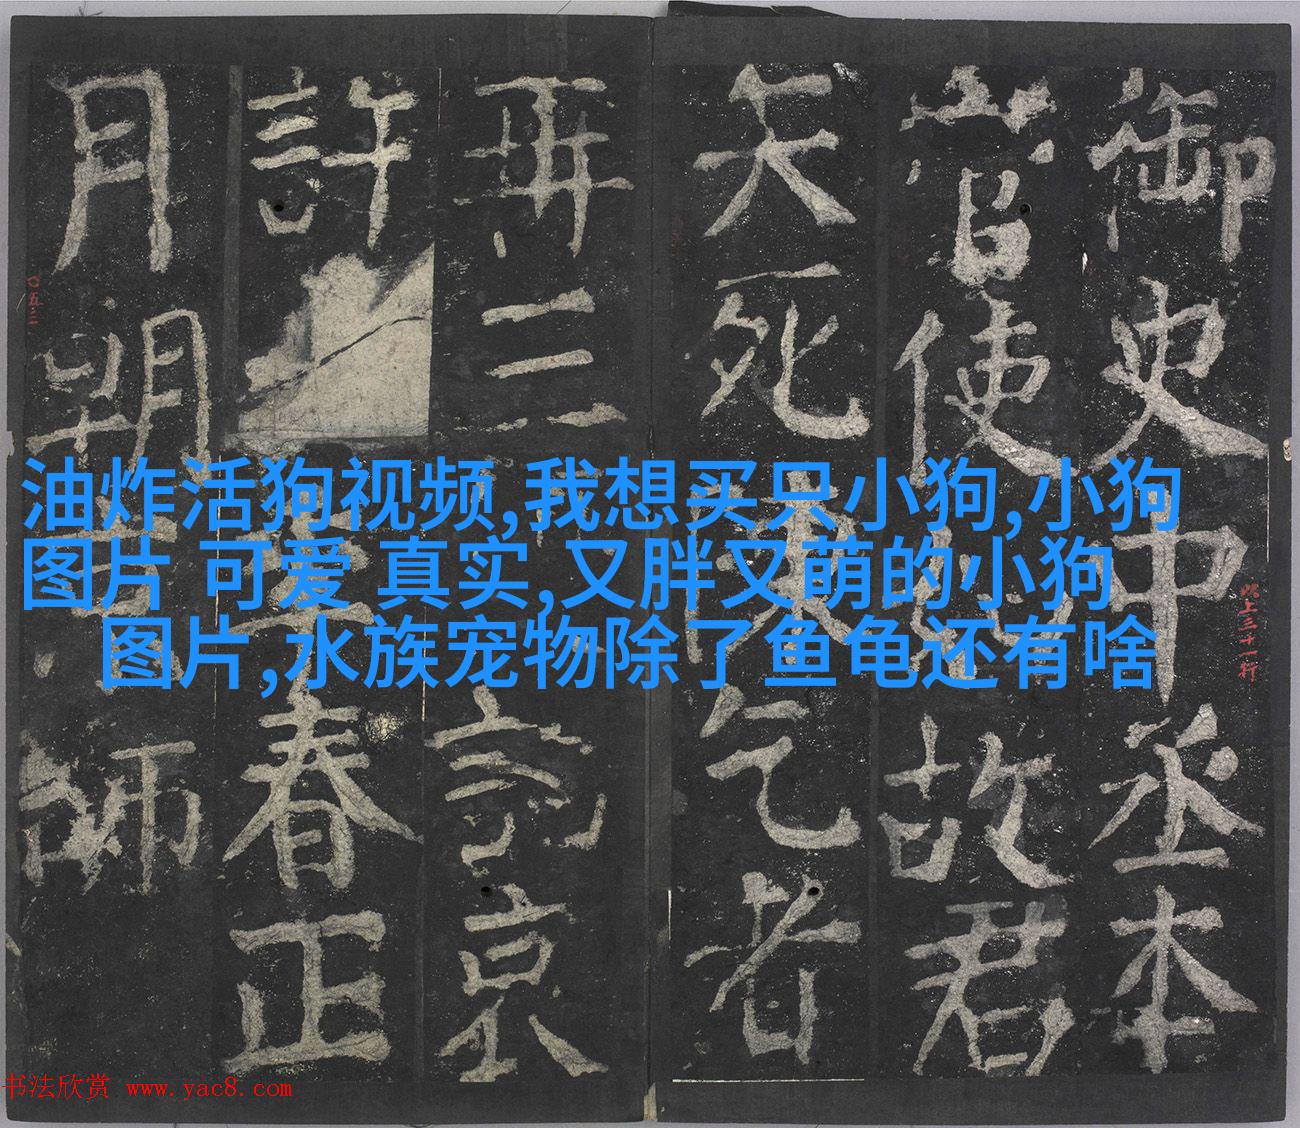 油炸活狗视频,我想买只小狗,小狗
图片 可爱 真实,又胖又萌的小狗
图片,水族宠物除了鱼龟还有啥
御史中丞本
使故君
矢死乞者
再三京
許春正
月朔師
以上三十一行
〇五三
书法欣赏 www.yac8.com